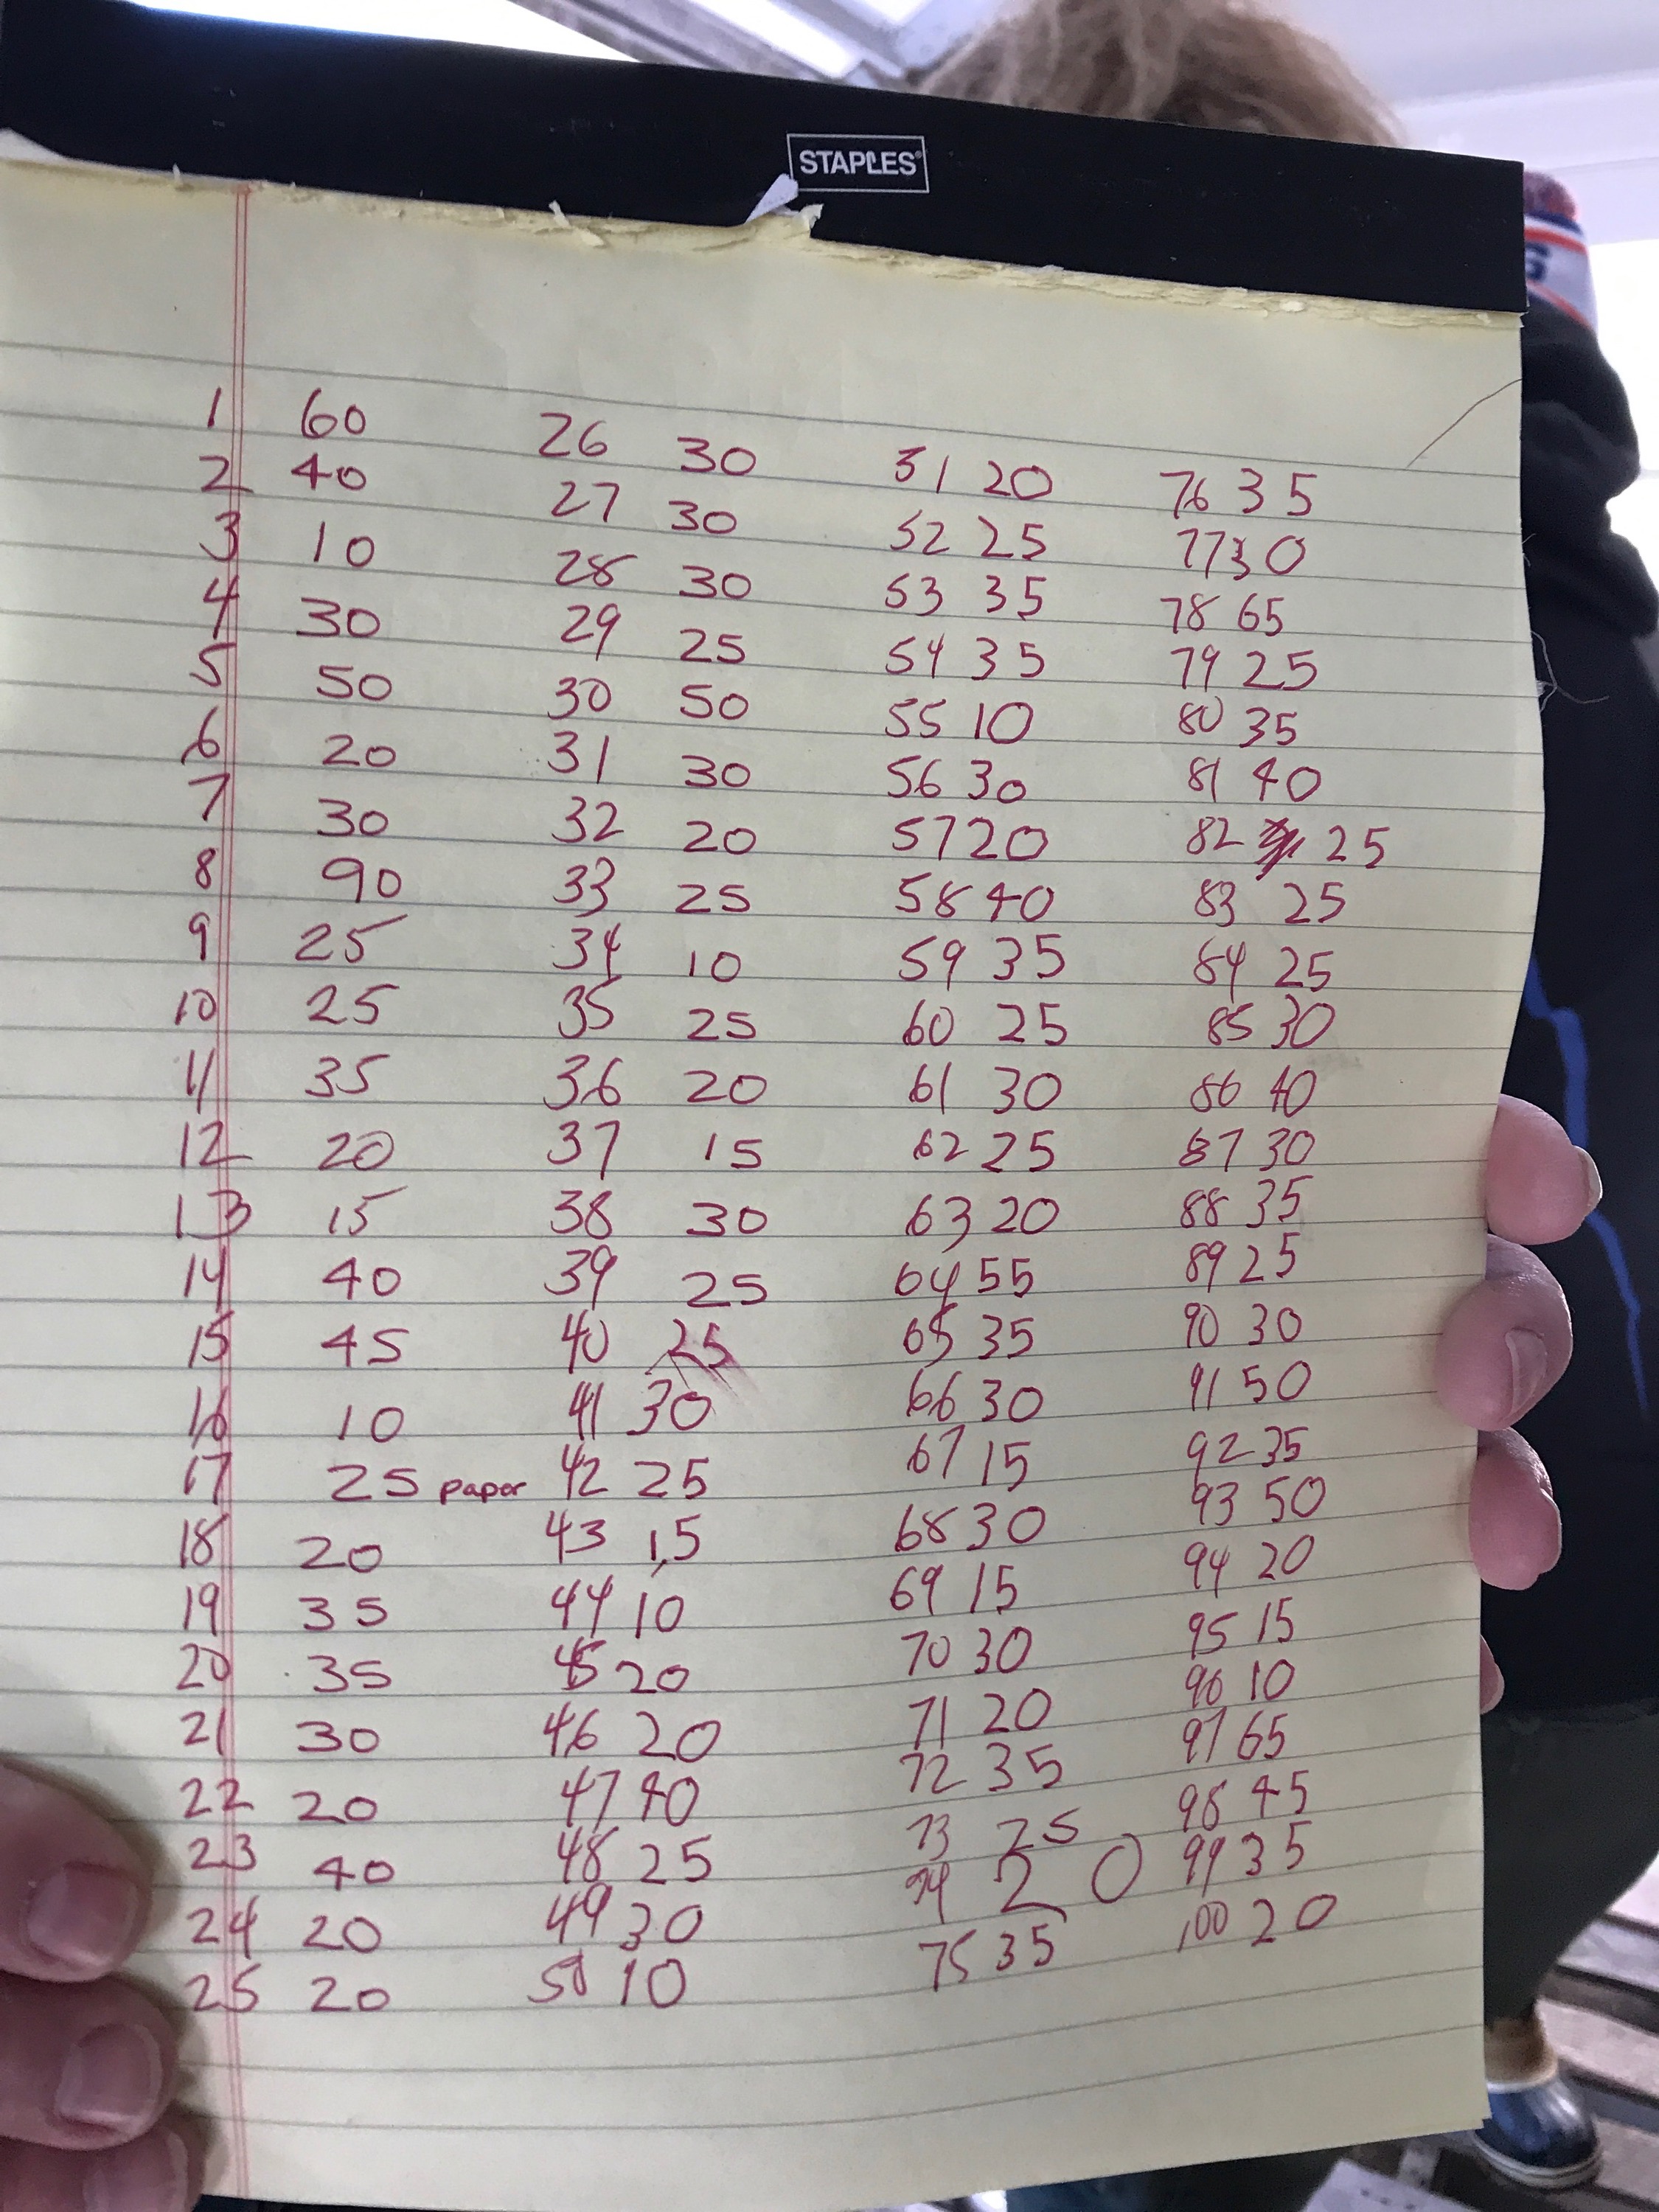 STAPLES
1 60
2 40
3 10
4 30
5 50
6 20
7 30
8 90
9 25
10 25
11 35
12 20
13 15
14 40
15 45
16 10
17 25 paper
18 20
19 35
20 35
21 30
22 20
23 40
24 20
25 20
26 30
27 30
28 30
29 25
30 50
31 30
32 20
33 25
34 10
35 25
36 20
37 15
38 30
39 25
40 25
41 30
42 25
43 15
44 10
45 20
46 20
47 40
48 25
49 30
50 10
51 20
52 25
53 35
54 35
55 10
56 30
57 20
58 40
59 35
60 25
61 30
62 25
63 20
64 55
65 35
66 30
67 15
68 30
69 15
70 30
71 20
72 35
73 25
74 20
75 35
76 35
77 30
78 65
79 25
80 35
81 40
82 25
83 25
84 25
85 30
86 40
87 30
88 35
89 25
90 30
91 50
92 35
93 50
94 20
95 15
96 10
97 65
98 45
99 35
100 20